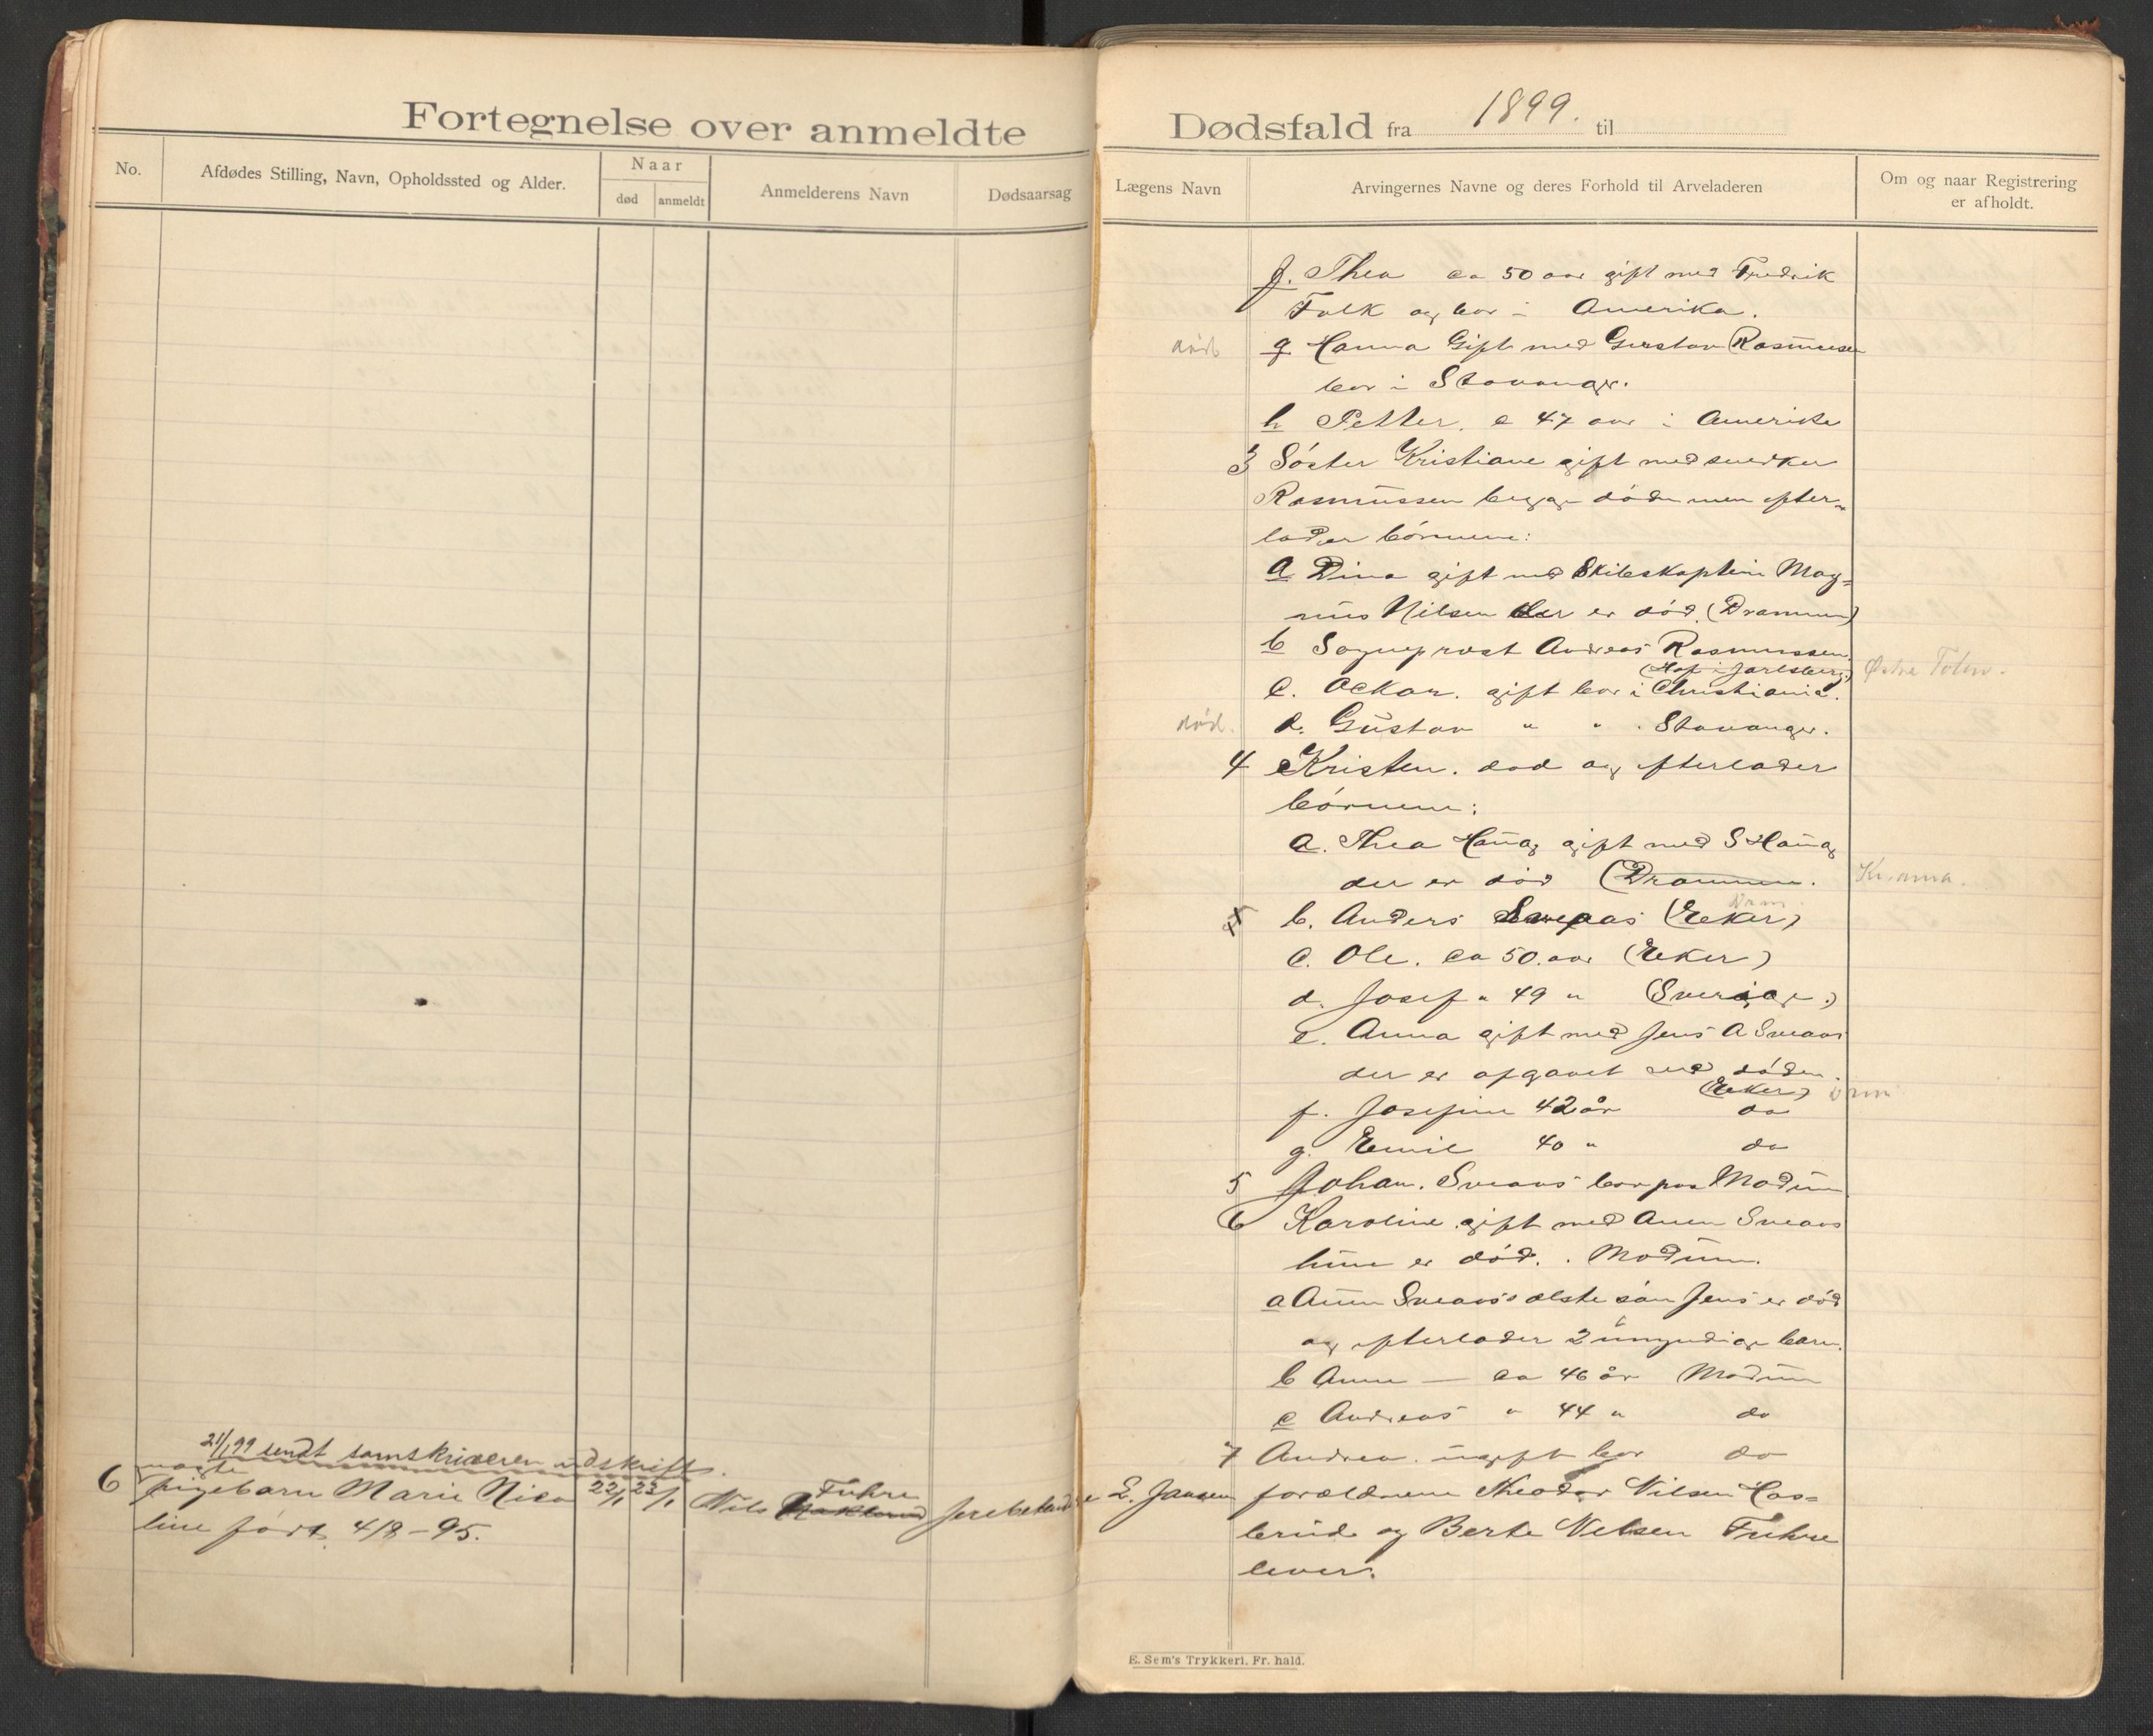 Fortegnelse over anmeldte
No.
Afdødes Stilling, Navn, Opholdssted og Alder.
Naar
død
anmeldt
Anmelderens Navn
Dødsaarsag
21/1 99 sendt sorenskriveren udskrift.
6 pigebarn Marie Nico 22/1 23/1 Nils Fuhre
line født 4/8-95.
Dødsfald fra 1899. til
Lægens Navn
Arvingernes Navne og deres Forhold til Arveladeren
Om og naar Registrering
er afholdt.
f. Thea ca 50 aar gift med Fredrik
Falk og bor i Amerika.
død g Hanna Gift med Gustav Rasmussen
bor i Stavanger.
h Petter. c 47 aar i Amerika
3 Søster Kristiane gift med
Rasmussen begge døde men efter-
lader børnene:
a Dina gift med Skibskaptein Mag-
nus Nilsen der er død. (Drammen)
b Sogneprest Andreas Rasmussen.
(Hof i Jarlsberg.) Østre Toten.
c. Oskar. gift bor i Christiania.
død. d. Gustav " " . Stavanger.
4 Kristen. død og efterlader
børnene:
a. Thea Haug gift med S Haug
der er død (Drammen. Kr.ania.
Dram.
x b. Anders Sveaas (Eker)
c. Ole. ca 50. aar (Eker)
d. Josef " 49 " (Sverige.)
e. Anna gift med Jens A Sveaas
der er afgaaet ved døden.
(Eker) Drm
f. Josefine 42 år do
g. Emil 40 " do
5 Johan. Sveaas bor paa Modum.
6 Karoline gift med Amen Sveaas
hun er død. . Modum.
a Amen Sveaas' ælste søn Jens er død
og efterlader 2 umyndige barn.
b Anne — ca 46 år Modum
c Andreas " 44 " do
7 Andrea. ugift bor do
L. Jansen forældrene Theodor Nilsen Has-
brud og Berte Nelsen Fuhre
lever.
E. Sem's Trykkeri. Fr.hald.